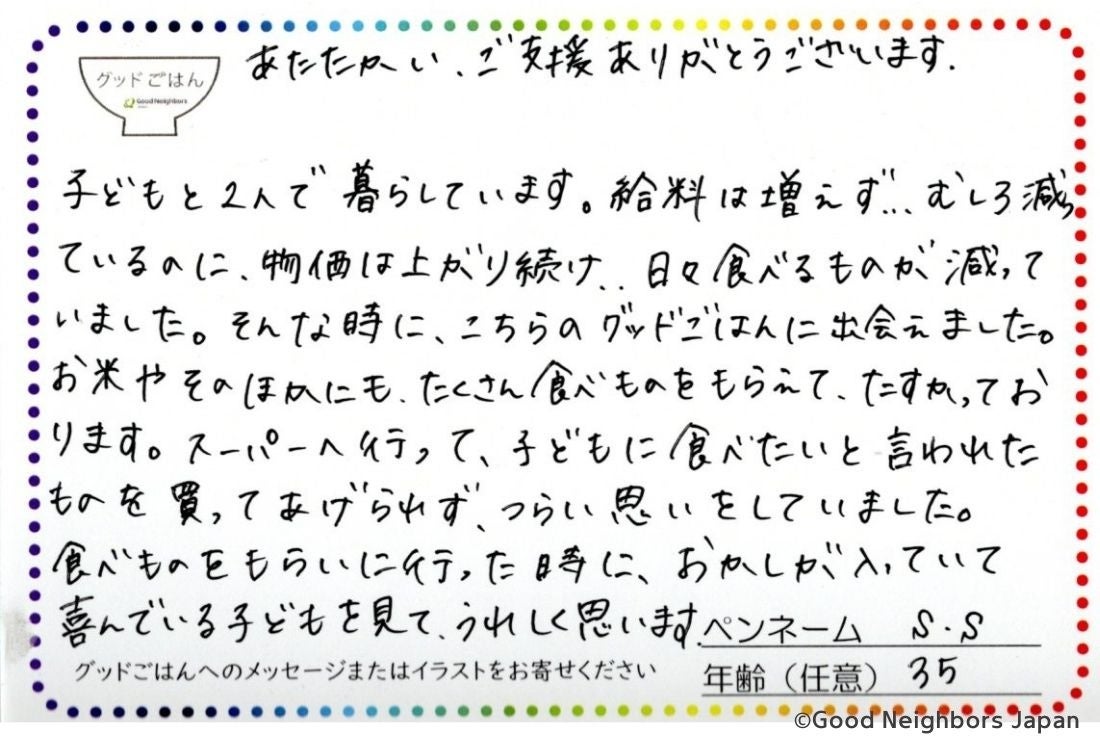 あたたかい、ご支援ありがとうございます.
グッドごはん
Good Neighbors
子どもと2人で暮らしています。給料は増えず… むしろ減っ
ているのに、物価は上がり続け.. 日々食べるものが減って
いました。そんな時に、こちらのグッドごはんに出会えました。
お米やそのほかにも、たくさん食べものをもらえて、たすかってお
ります。スーパーへ行って、子どもに食べたいと言われた
ものを買ってあげられず、つらい思いをしていました。
食べものをもらいに行った時に、おかしが入っていて
喜んでいる子どもを見て、うれしく思います.
ペンネーム S.S
グッドごはんへのメッセージまたはイラストをお寄せください
年齢（任意） 35
©Good Neighbors Japan